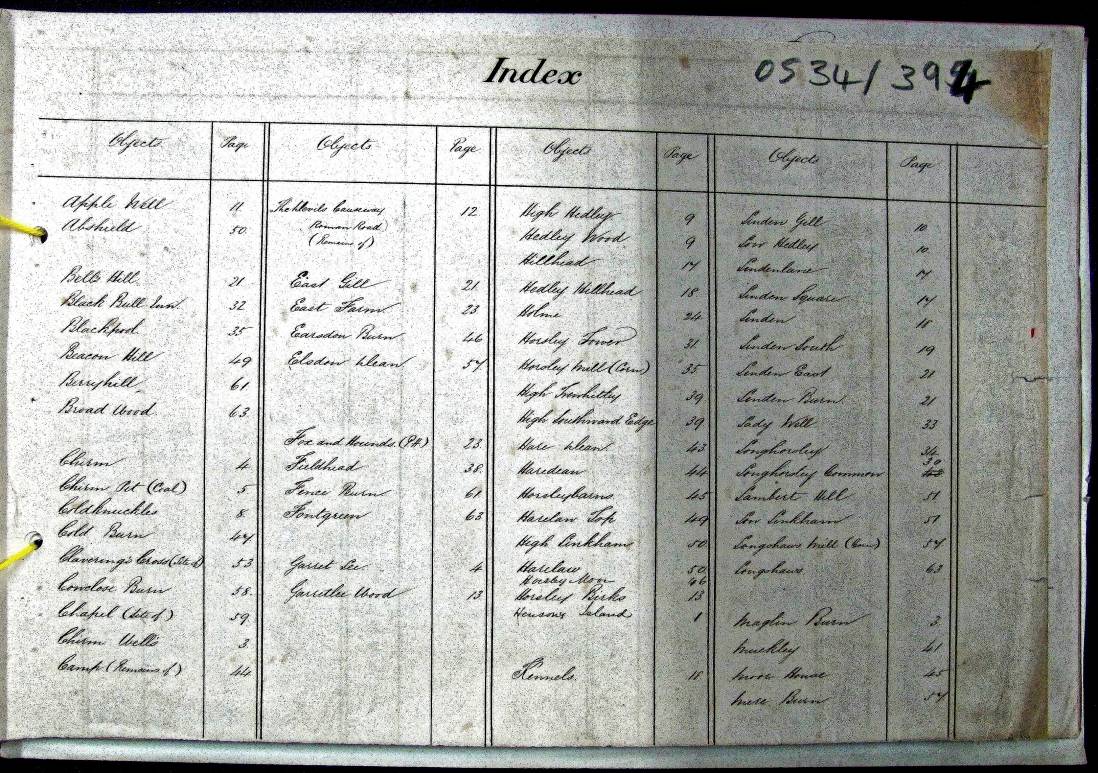 Index
OS 34/394
Objects Page Objects Page Objects Page Objects Page
Apple Well 11
Abshield 50
Bells Hill 21
Black Bull Inn 32
Blackpool 35
Beacon Hill 49
Berryhill 61
Broad Wood 63
Chirm 4
Chirm Pit (Coal) 5
Coldknuckles 8
Cold Burn 47
Clavering's Cross (Site of) 53
Cowclose Burn 58
Chapel (Site of) 59
Chirm Wells 3
Camp (Remains of) 44
The Devils Causeway 12
Roman Road
(Remains of)
East Gill 21
East Farm 23
Earsdon Burn 46
Elsdon Dean 57
Fox and Hounds (P.H.) 23
Fieldhead 38
Fence Burn 61
Fontgreen 63
Garret Lee 4
Garretlee Wood 13
High Hedley 9
Hedley Wood 9
Hillhead 17
Hedley Hillhead 18
Holme 24
Horsley Tower 31
Horsley Mill (Corn) 35
High Trewhitley 39
High Southward Edge 39
Hare Dean 43
Haredean 44
Horsleybarns 45
Harelaw Top 49
High Linkham 50
Harelaw 50
Horsley Moor 46
Horsley Birks 13
Hewsons Island 1
Kennels 18
Linden Gill 10
Low Hedley 10
Lindenlane 17
Linden Square 17
Linden 18
Linden South 19
Linden East 21
Linden Burn 21
Lady Well 33
Longhorsley 34
Longhorsley Common 39
Lambert Hill 51
Low Linkham 51
Longshaws Mill (Corn) 57
Longshaws 63
Maglin Burn 3
Muckley 41
Moor House 45
Mere Burn 57